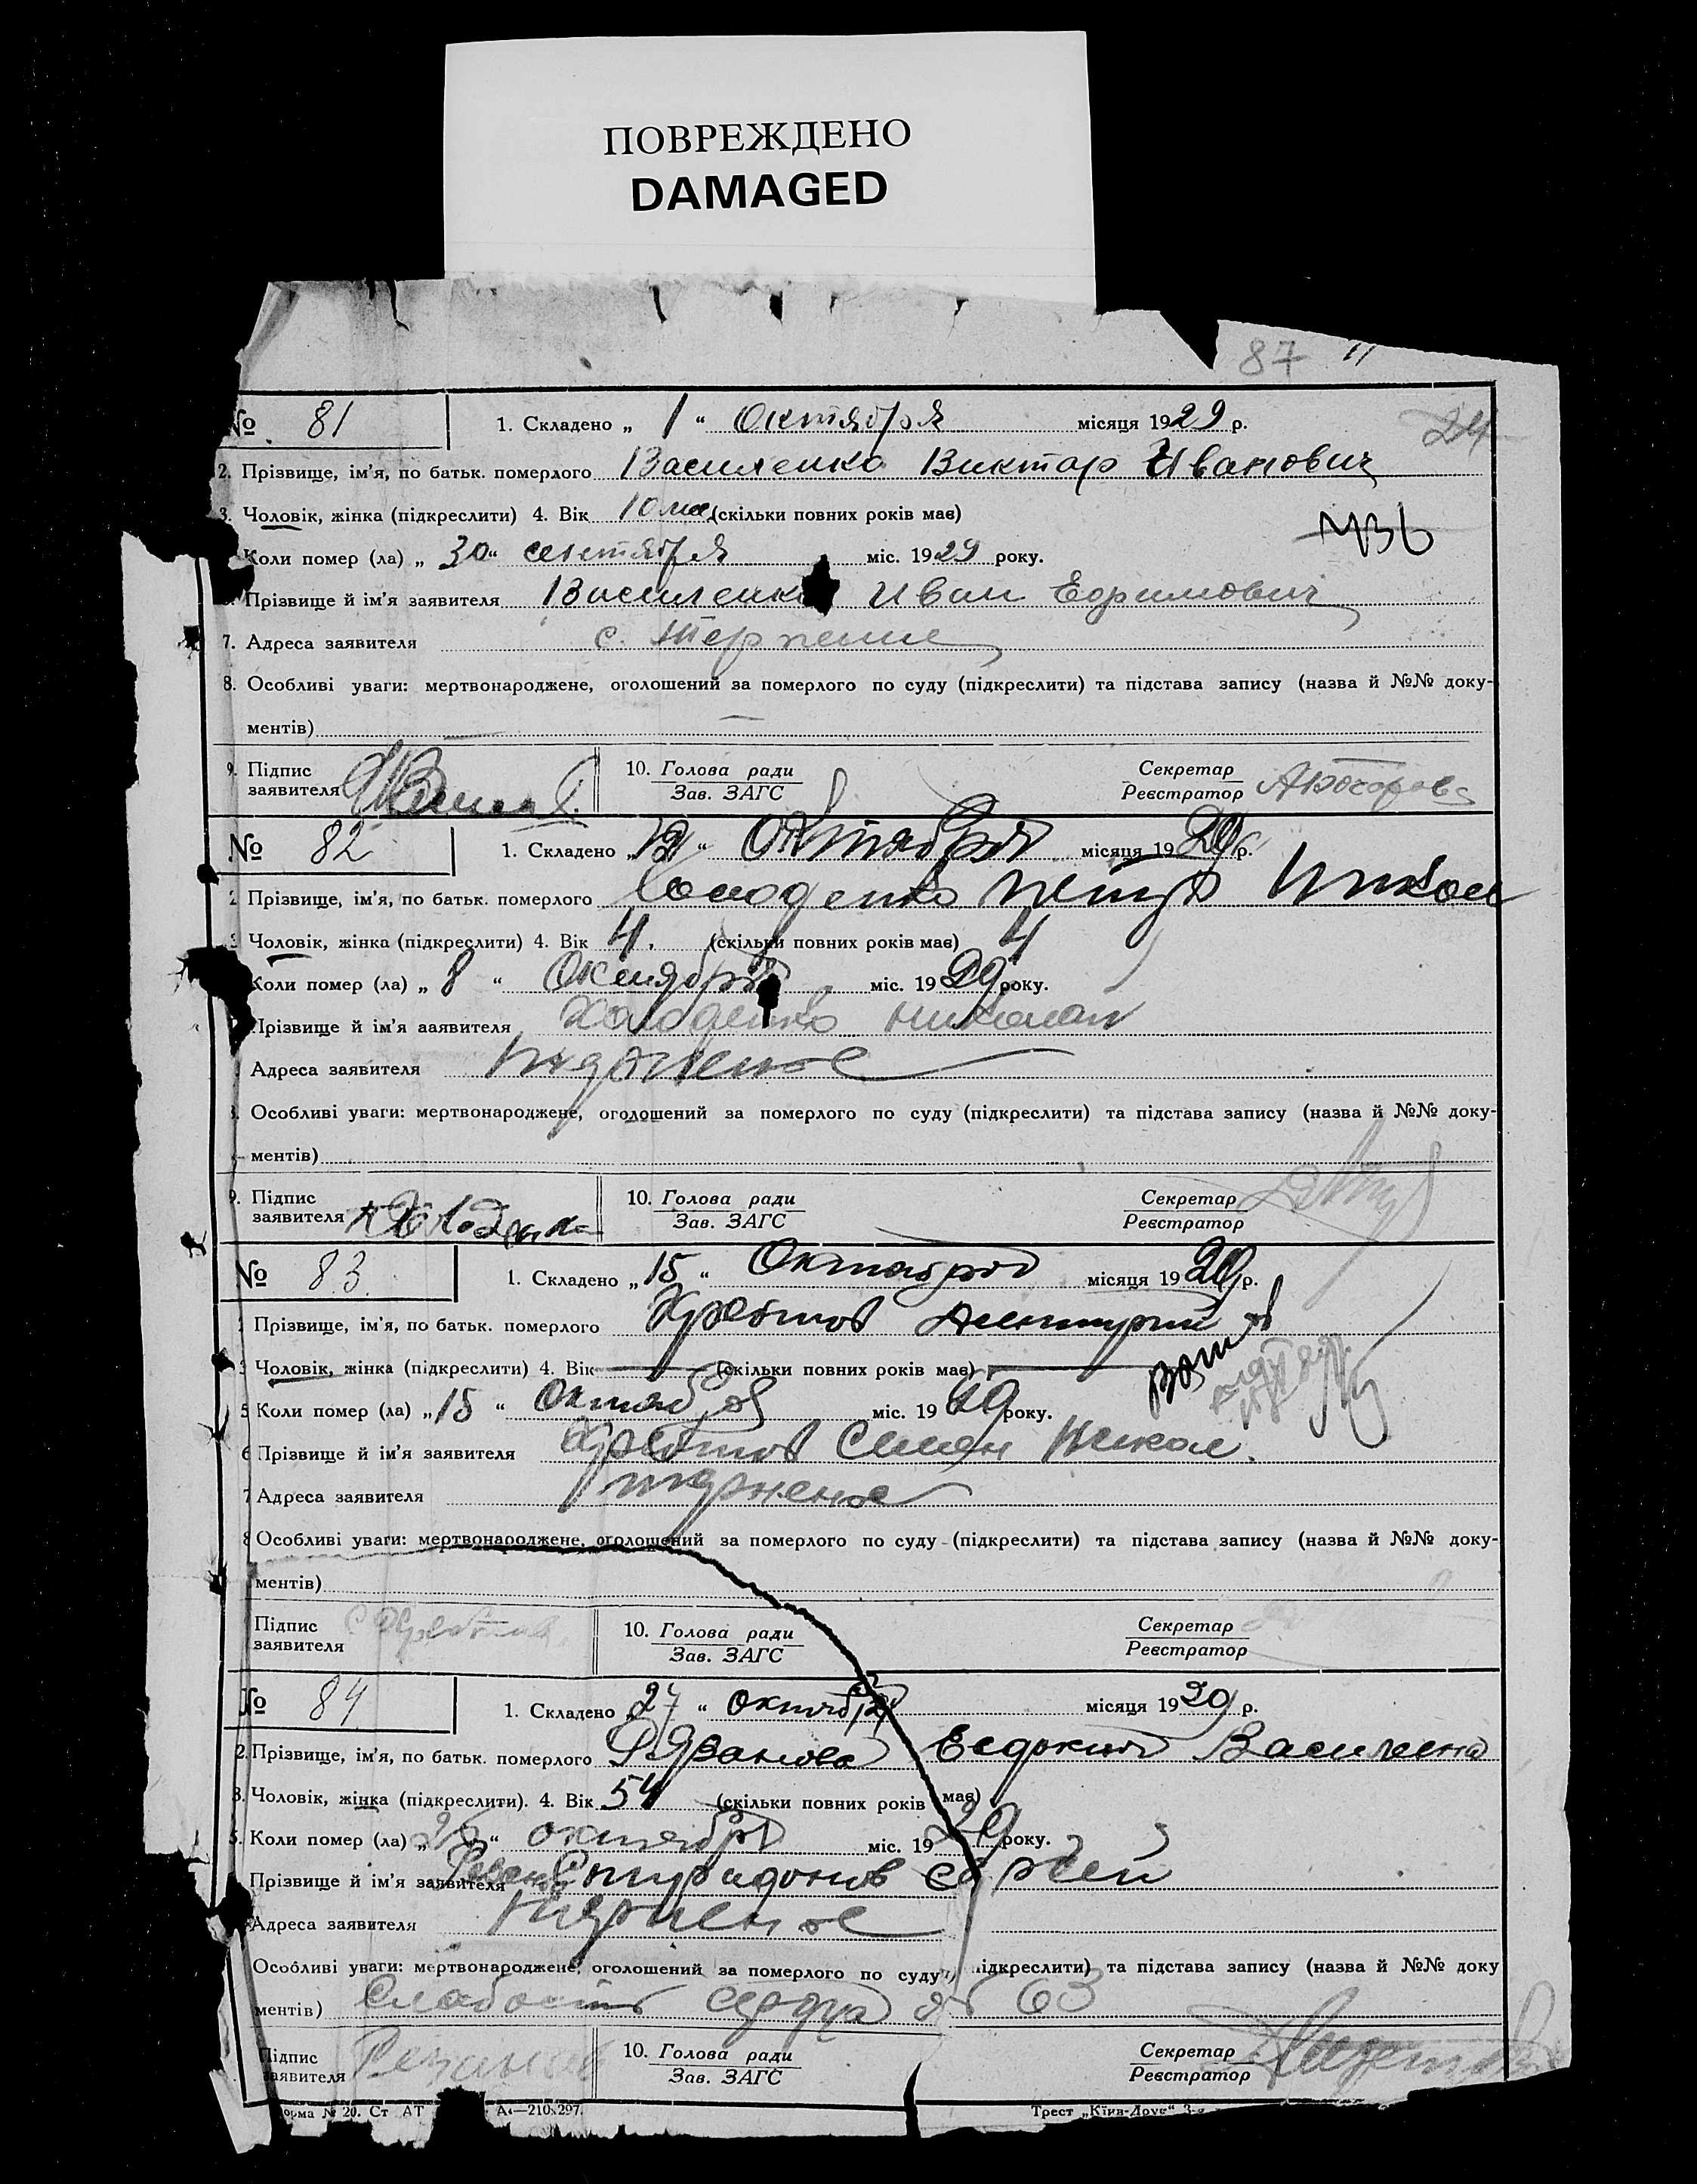 ПОВРЕЖДЕНО
DAMAGED
87 11
№ 81 1. Складено „ 1 “ Октября місяця 1929 р.
2. Прізвище, ім’я, по батьк. померлого Василенко Виктор Иванович
3. Чоловік, жінка (підкреслити) 4. Вік 10 мес (скільки повних років має)
Коли помер (ла) „ 30 “ сентября міс. 1929 року.
Прізвище й ім’я заявителя Василенко Иван Ефимович
7. Адреса заявителя с. Терпение
8. Особливі уваги: мертвонароджене, оголошений за померлого по суду (підкреслити) та підстава запису (назва й №№ доку-
ментів)
9. Підпис заявителя 10. Голова ради Зав. ЗАГС Секретар Реєстратор
№ 82 1. Складено „ “ Октября місяця 1929 р.
2 Прізвище, ім’я, по батьк. померлого Холоденко Петр Никол
3 Чоловік, жінка (підкреслити) 4. Вік 4. (скільки повних років має) 4
Коли помер (ла) „ 8 “ Октября міс. 1929 року.
Прізвище й ім’я ааявителя Холоденко Николай
Адреса заявителя Терпение
Особливі уваги: мертвонароджене, оголошений за померлого по суду (підкреслити) та підстава запису (назва й №№ доку-
ментів)
9. Підпис заявителя 10. Голова ради Зав. ЗАГС Секретар Реєстратор
№ 83 1. Складено „ 15 “ Октября місяця 1929 р.
Прізвище, ім’я, по батьк. померлого
3 Чоловік, жінка (підкреслити) 4. Вік (скільки повних років має)
5 Коли помер (ла) „ 15 “ Октября міс. 1929 року.
6 Прізвище й ім’я заявителя Семен Никол.
7 Адреса заявителя терпение
8 Особливі уваги: мертвонароджене, оголошений за померлого по суду (підкреслити) та підстава запису (назва й №№ доку-
ментів)
Підпис заявителя 10. Голова ради Зав. ЗАГС Секретар Реєстратор
№ 84 1. Складено „ 27 “ Октября місяця 1929 р.
2. Прізвище, ім’я, по батьк. померлого Евдокия Василевна
3. Чоловік, жінка (підкреслити). 4. Вік 54 (скільки повних років має)
5. Коли помер (ла) „ 26 “ октября міс. 1929 року.
Прізвище й ім’я заявителя Спиридонов Сергей
Адреса заявителя Терпение
Особливі уваги: мертвонароджене, оголошений за померлого по суду підкреслити) та підстава запису (назва й №№ доку
ментів) Слабость сердца 63
Підпис заявителя 10. Голова ради Зав. ЗАГС Секретар Реєстратор
орма № 20. Ст АТ А₄—210x297. Трест „Київ-Друк“ 3-я